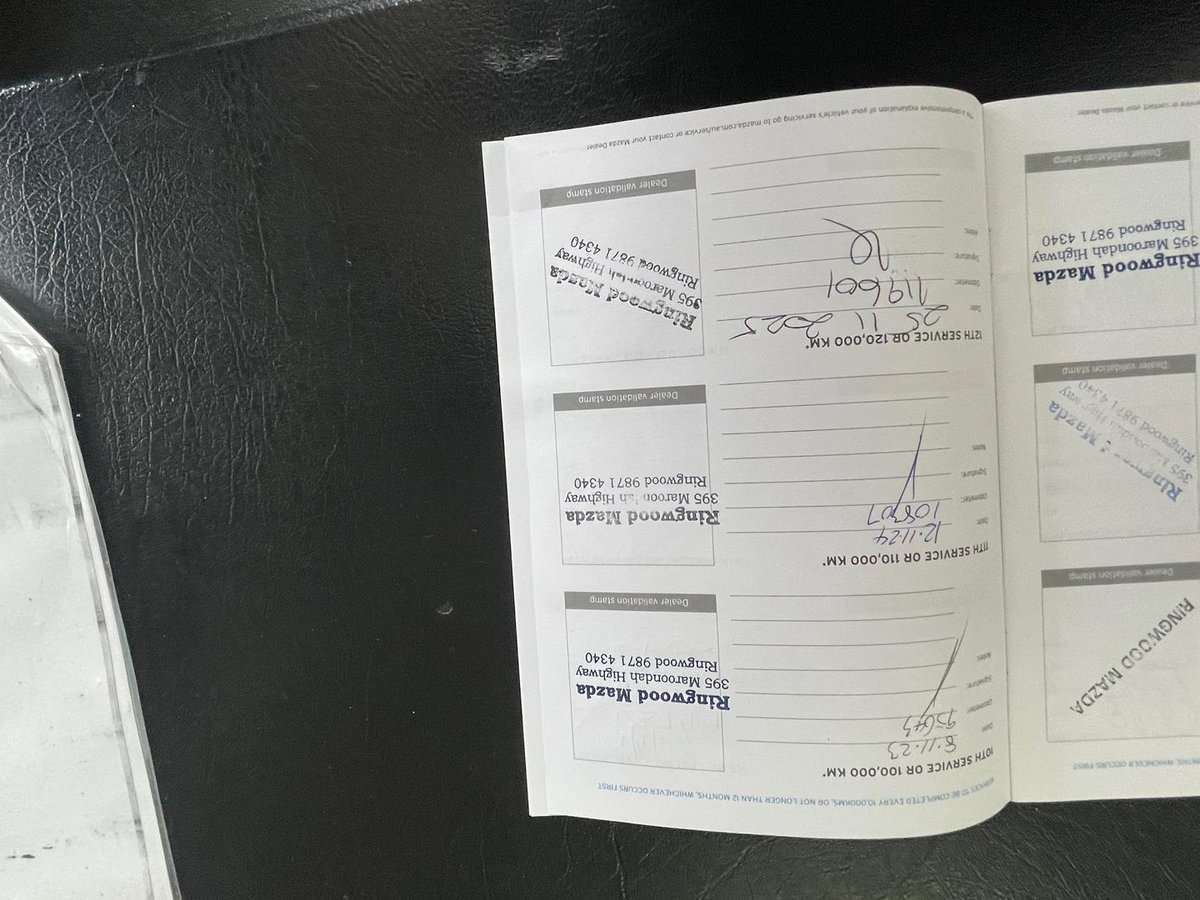 NTHS, WHICHEVER OCCURS FIRST
RINGWOOD MAZDA
Dealer validation stamp
Mazda
395
Ringwood 9871 4340
Dealer validation stamp
Ringwood Mazda
395 Maroondah Highway
Ringwood 9871 4340
Dealer validation stamp
or contact your Mazda Dealer
SERVICES TO BE COMPLETED EVERY 10,000KMS, OR NOT LONGER THAN 12 MONTHS, WHICHEVER OCCURS FIRST
10TH SERVICE OR 100,000 KM*
Date: 8.11.23
Odometer: 95643
Signature:
Notes:
Ringwood Mazda
395 Maroondah Highway
Ringwood 9871 4340
Dealer validation stamp
11TH SERVICE OR 110,000 KM*
Date: 12.11.24
Odometer: 108307
Signature:
Notes:
Ringwood Mazda
395 Maroondah Highway
Ringwood 9871 4340
Dealer validation stamp
12TH SERVICE OR 120,000 KM*
Date: 25 11 2025
Odometer: 119601
Signature:
Notes:
Ringwood Mazda
395 Maroondah Highway
Ringwood 9871 4340
Dealer validation stamp
*For a comprehensive explanation of your vehicle's servicing go to mazda.com.au/service or contact your Mazda Dealer